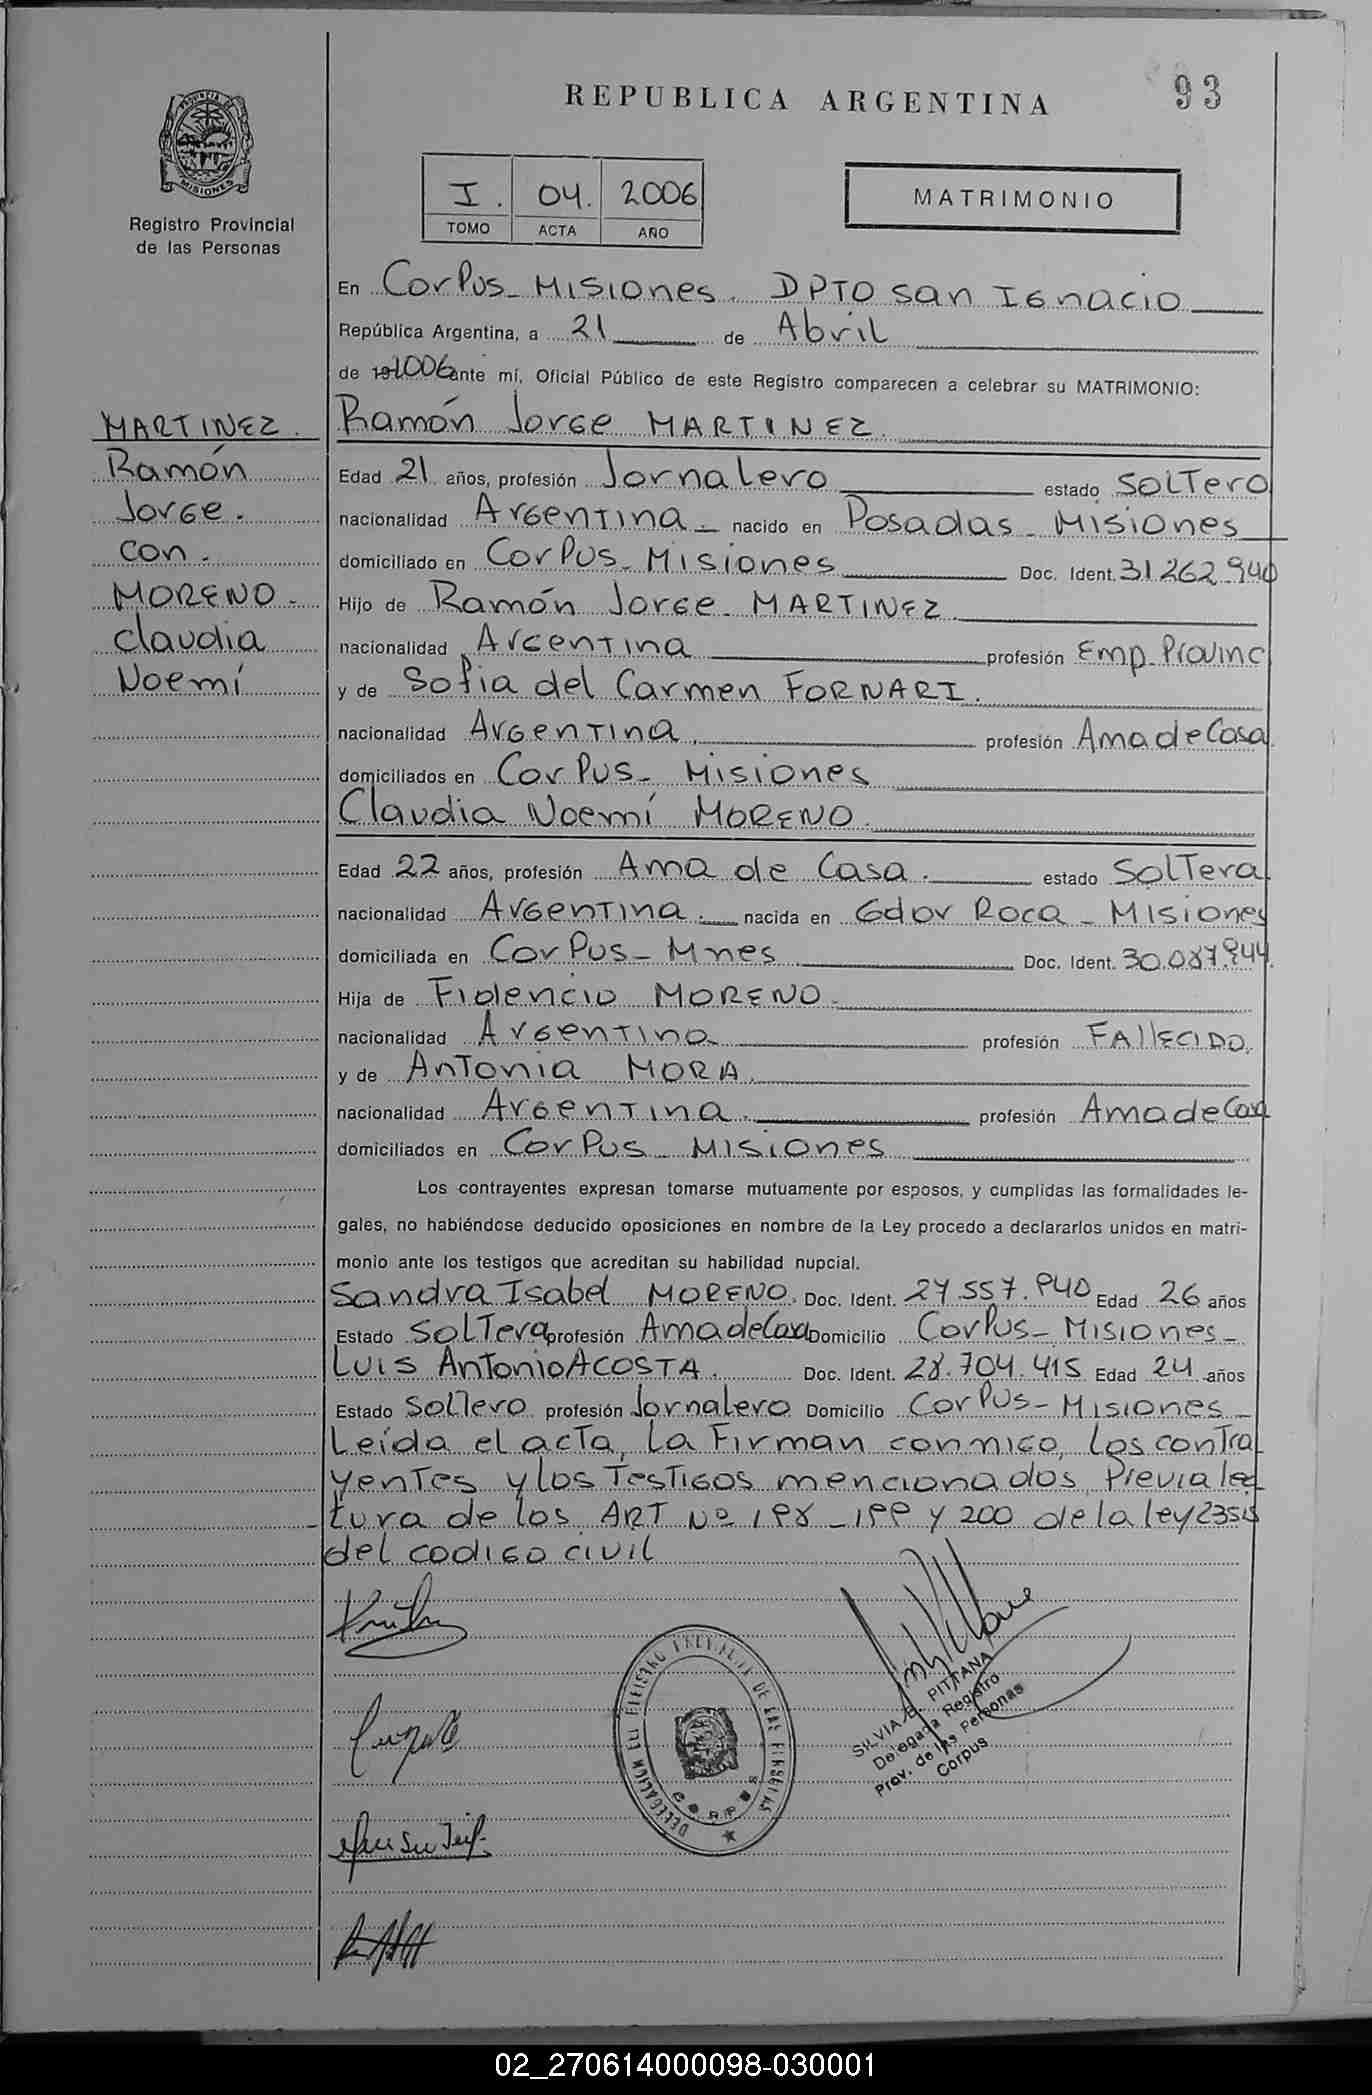 93
REPUBLICA ARGENTINA
PROVINCIA DE
MISIONES
Registro Provincial
de las Personas
I. 04. 2006
TOMO ACTA AÑO
MATRIMONIO
En Corpus - Misiones. DPTO San Ignacio
República Argentina, a 21 de Abril
de 2006 ante mí, Oficial Público de este Registro comparecen a celebrar su MATRIMONIO:
MARTINEZ.
Ramón
Jorge.
con.
MORENO -
Claudia
Noemí
Ramón Jorge MARTINEZ.
Edad 21 años, profesión Jornalero estado Soltero
nacionalidad Argentina - nacido en Posadas - Misiones
domiciliado en Corpus - Misiones Doc. Ident. 31.262.940
Hijo de Ramón Jorge MARTINEZ.
nacionalidad Argentina profesión Emp. Provinc
y de Sofia del Carmen FORNARI.
nacionalidad Argentina. profesión Ama de Casa.
domiciliados en Corpus - Misiones
Claudia Noemí MORENO.
Edad 22 años, profesión Ama de Casa. estado Soltera
nacionalidad Argentina. nacida en Gdor Roca - Misiones
domiciliada en Corpus - Mnes Doc. Ident. 30.087.944.
Hija de Fidencio MORENO.
nacionalidad Argentina profesión FALLECIDO.
y de Antonia MORA.
nacionalidad Argentina. profesión Ama de Casa
domiciliados en Corpus - Misiones
Los contrayentes expresan tomarse mutuamente por esposos, y cumplidas las formalidades le-
gales, no habiéndose deducido oposiciones en nombre de la Ley procedo a declararlos unidos en matri-
monio ante los testigos que acreditan su habilidad nupcial.
Sandra Isabel MORENO. Doc. Ident. 27.557.940 Edad 26 años
Estado Soltera profesión Ama de Casa Domicilio Corpus - Misiones -
Luis Antonio ACOSTA. Doc. Ident. 28.704.415 Edad 24 años
Estado Soltero profesión Jornalero Domicilio Corpus - Misiones -
Leída el acta, la Firman conmigo, los contra
yentes y los Testigos mencionados, Previa lec
tura de los ART Nº 198 - 199 y 200 de la ley 23515
del codigo civil
DELEGACION DEL REGISTRO PROVINCIAL DE LAS PERSONAS
CORPUS
SILVIA E. PITTANA
Delegada Registro
Prov. de las Personas
Corpus
02_270614000098-030001